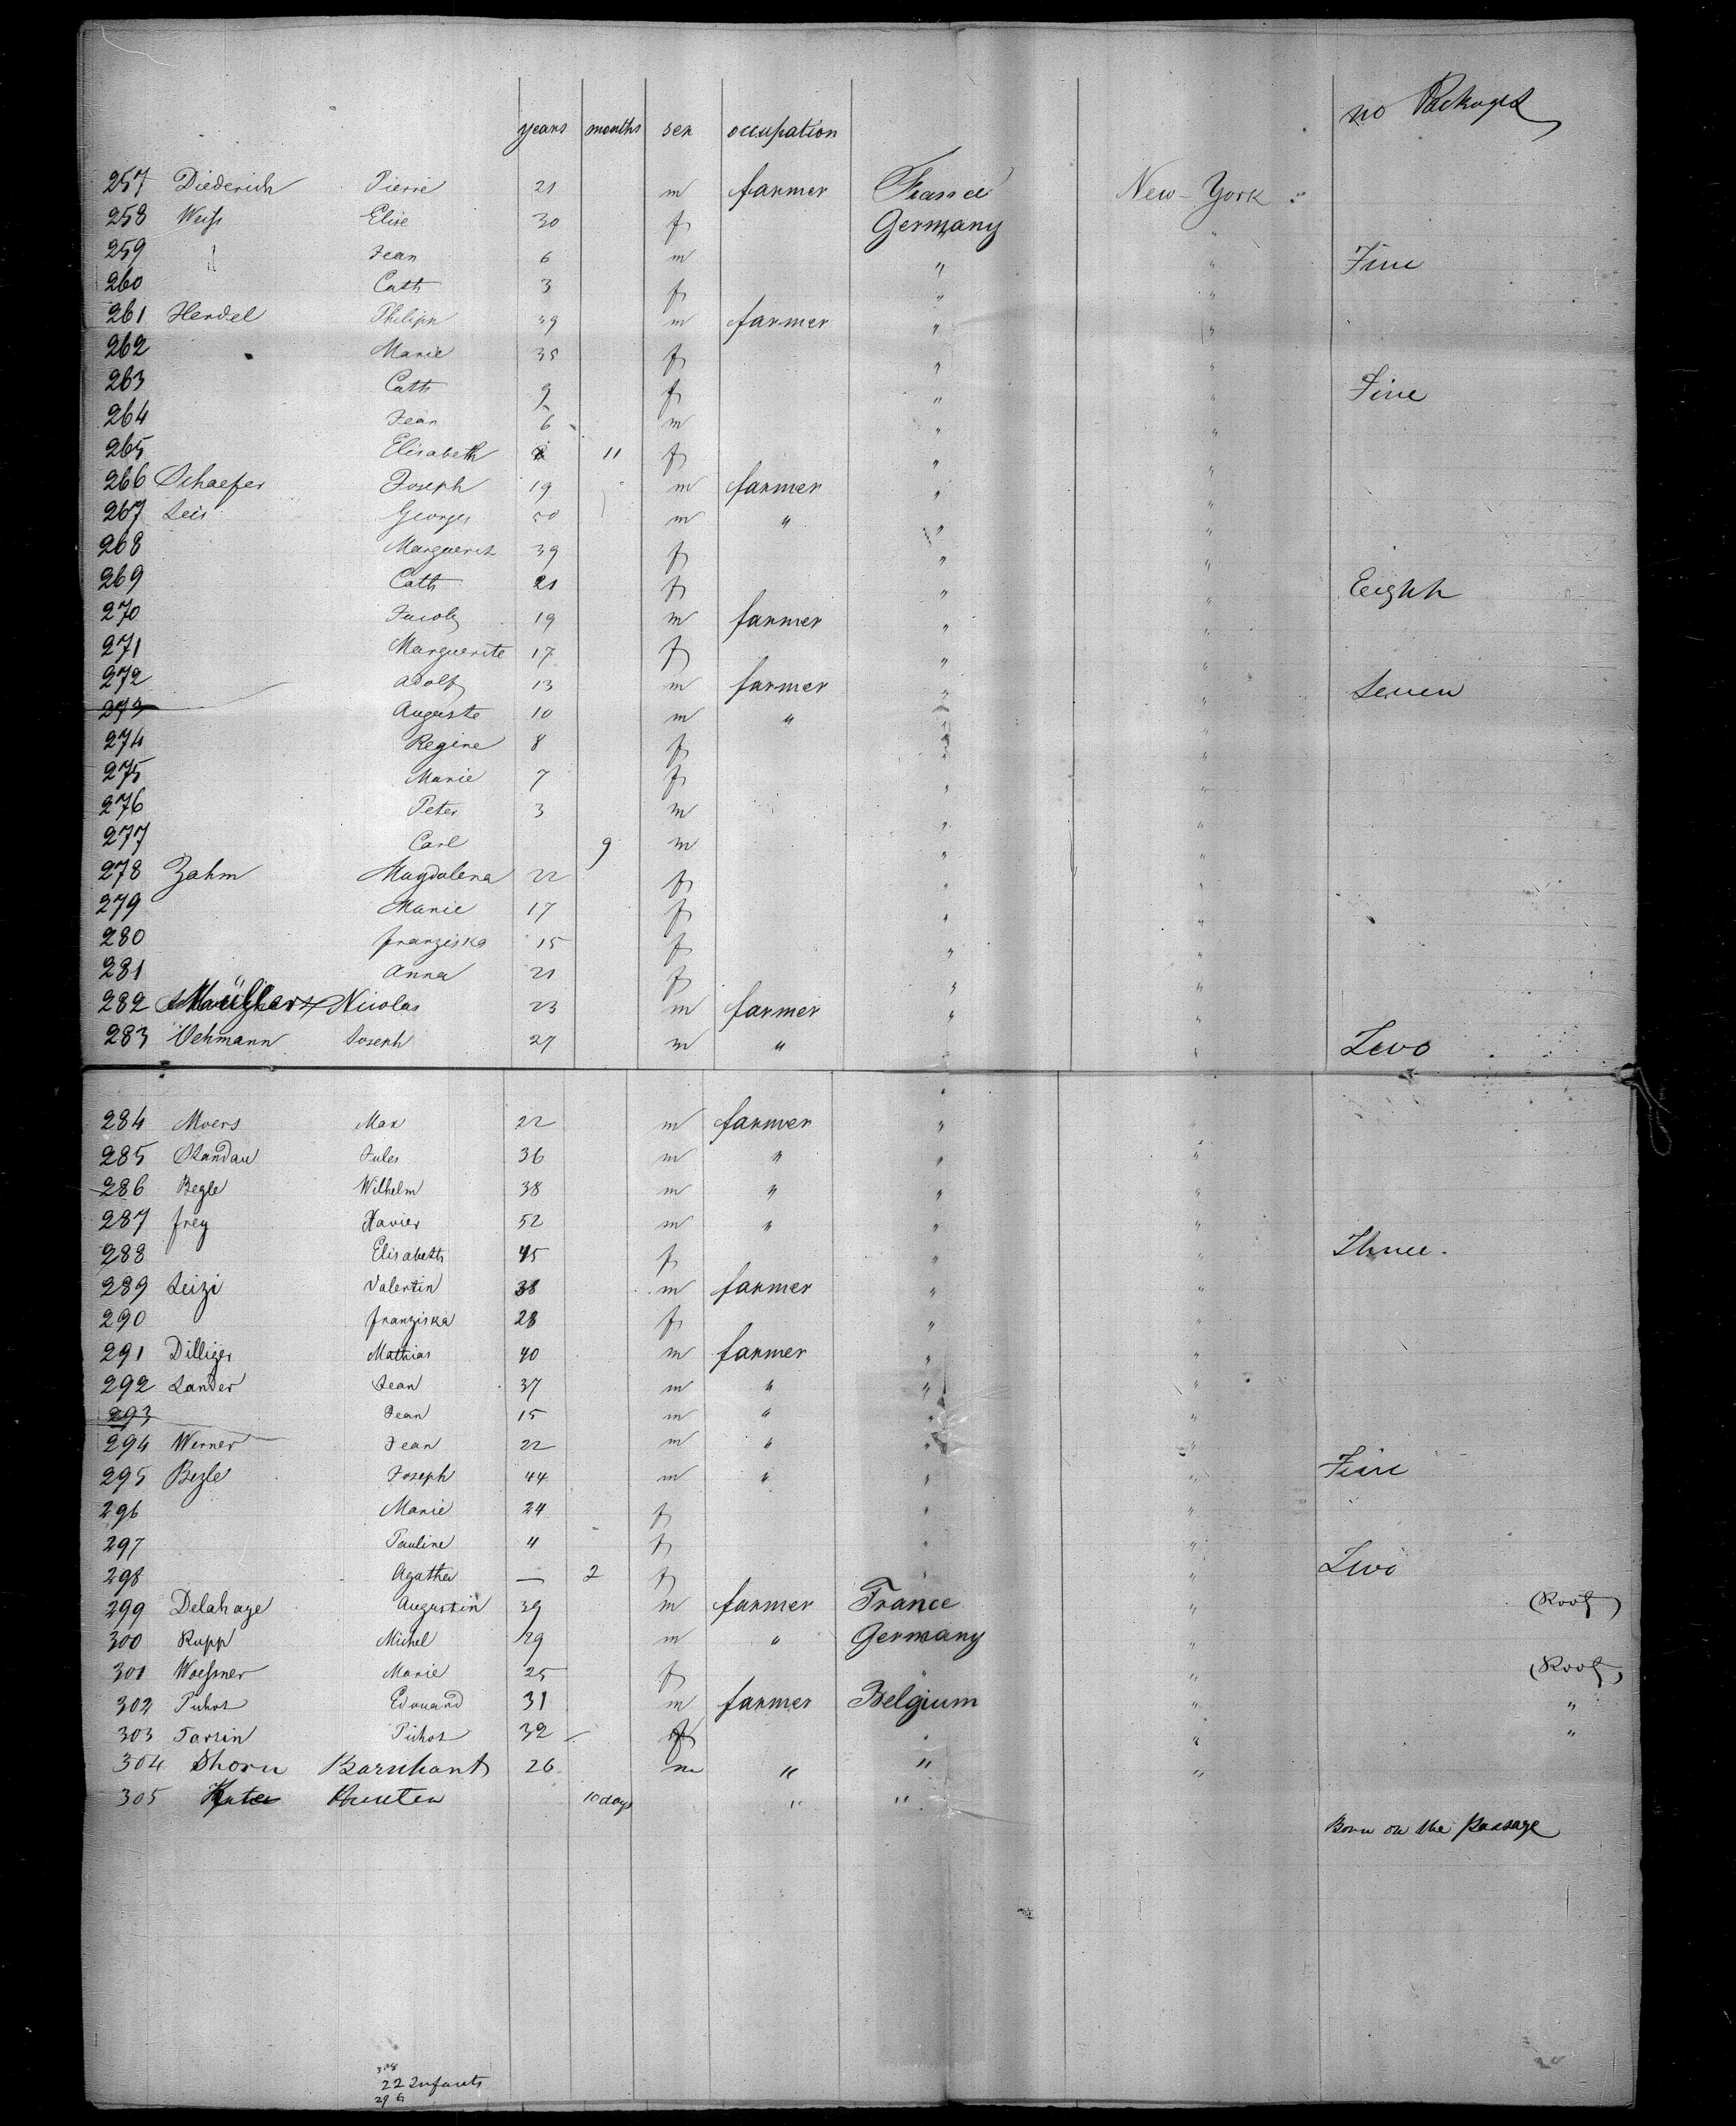 no Packages
years months sex occupation
257 Diederich Pierre 21 m farmer France New-York
258 Weiss Elise 30 f Germany "
259 " Jean 6 m " " Five
260 Cath 3 f " "
261 Hendel Philipp 39 m farmer " "
262 Marie 35 f " "
263 Cath 9 f " " Five
264 Jean 6 m " "
265 Elisabeth 11 f " "
266 Schaefer Joseph 19 m farmer " "
267 Leis Georges 50 m " " "
268 Marguerit 39 f " "
269 Cath 21 f " " Eight
270 Jacob 19 m farmer " "
271 Marguerite 17 f " "
272 Adolf 13 m farmer " " Seven
273 Auguste 10 m " " "
274 Regine 8 f " "
275 Marie 7 f " "
276 Peter 3 m " "
277 Carl 9 m " "
278 Zahm Magdalena 22 f " "
279 Marie 17 f " "
280 franziska 15 f " "
281 Anna 21 f " "
282 Nicolas 23 m farmer " "
283 Vehmann Joseph 27 m " " Two
284 Moers Max 22 m farmer " "
285 Landau Jules 36 m " " "
286 Begle Wilhelm 38 m " " "
287 frey Xavier 52 m " " "
288 Elisabeth 45 f " " Three.
289 Leizi Valentin 38 m farmer " "
290 franziska 28 f " "
291 Dilliger Mathias 40 m farmer " "
292 Sander Jean 37 m " " "
293 Jean 15 m " " "
294 Werner Jean 22 m " " "
295 Begle Joseph 44 m " " " Five
296 Marie 24 f " "
297 Pauline 4 f " "
298 Agatha — 2 f " " Two
299 Delahaye Augustin 39 m farmer France " (Roof)
300 Rupp Michel 29 m " Germany "
301 Woessner Marie 25 f " " (Roof)
302 Edouard 31 m farmer Belgium " "
303 32 f " " "
304 Shorn Barnhant 26 m " " "
305 10 days " "
Born on the Passage
22 Infants